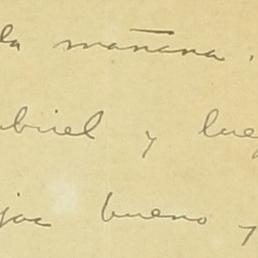 la mañana.
abriel y lueg
jar bueno y